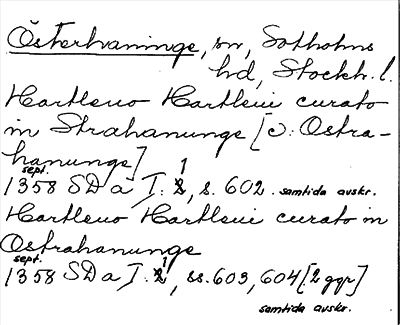 Österhaninge, sn, Sotholms
hd, Stockh. l.
Hartleuo Hartleui curato
in Strahanunge [ɔ: Ostra-
hanunge]
sept. 1
1358 SD ä I: 2, s. 602. samtida avskr.
Hartleuo Hartleui curato in
Ostrahanunge
sept. 1
1358 SD ä I: 2, ss. 603, 604 [2 ggr]
samtida avskr.